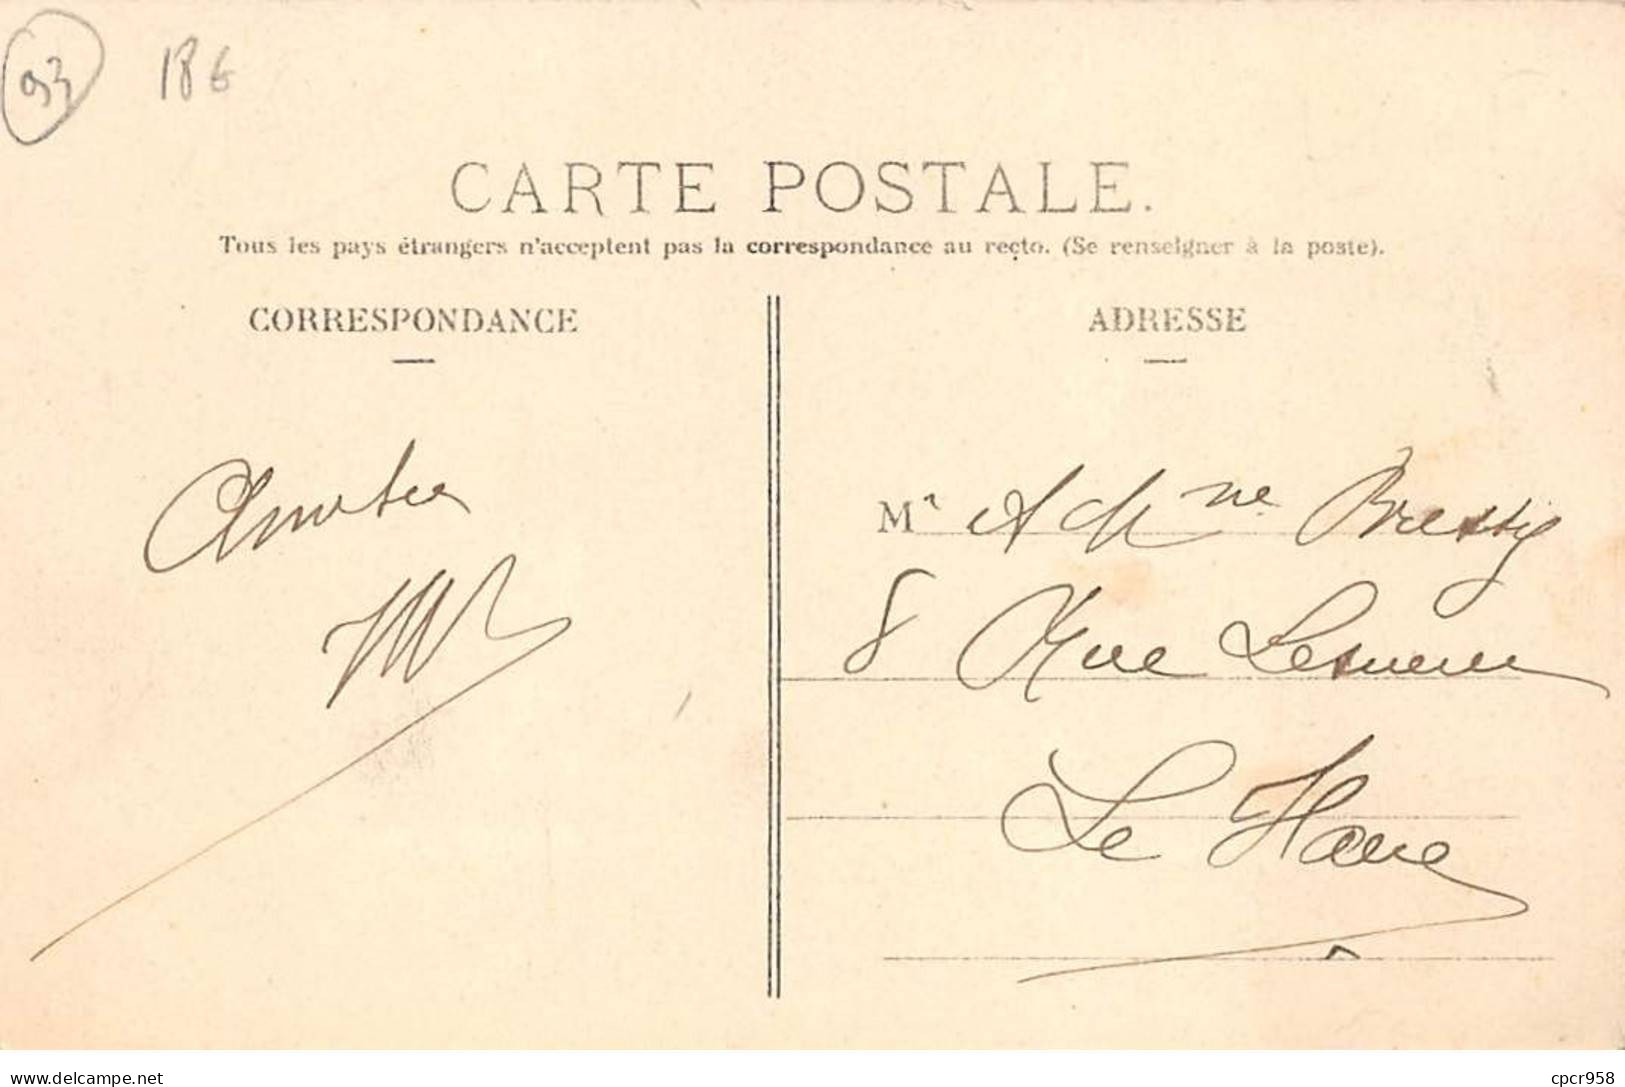 93
18 €
CARTE POSTALE.
Tous les pays étrangers n'acceptent pas la correspondance au recto. (Se renseigner à la poste).
CORRESPONDANCE
ADRESSE
Amitiés
Mr
8 Rue Lesueur
Le Havre
www.delcampe.net
cpcr958